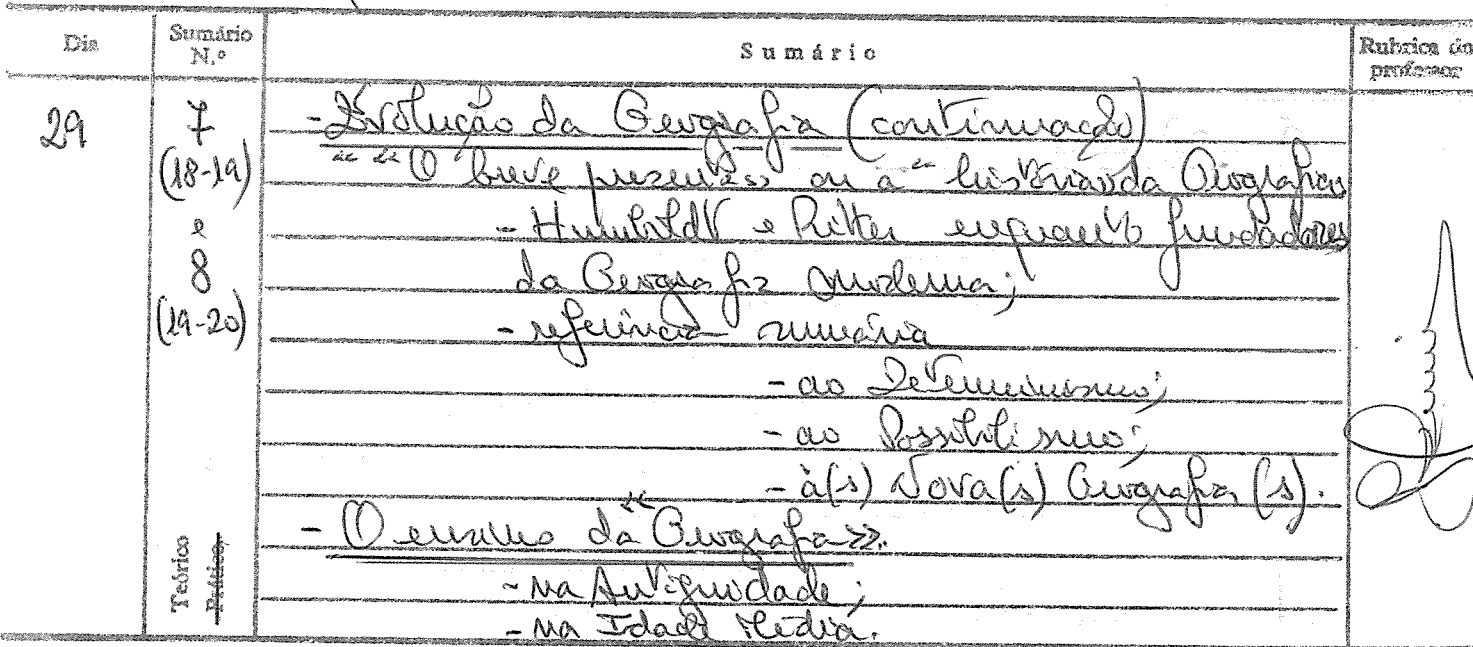 Dia Sumário N.º Sumário Rubrica do professor
29 7 - Evolução da Geografia (continuação)
(18-19) «« O breve presente»» ou a "história da Geografia
e - Humboldt e Ritter enquanto fundadores
8 da Geografia moderna;
(19-20) - referência sumária
- ao Determinismo;
- ao Possibilismo;
- à(s) Nova(s) Geografia(s).
- O ensino da «Geografia».
Teórico Prático - na Antiguidade;
- na Idade Média.